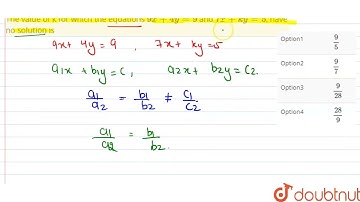 The value of k for which the equations 9x + 4y = 9 and 7x + ky = 5, have
no solution is
9x + 4y = 9 , 7x + ky = 5
a₁x + b₁y = C₁ a₂x + b₂y = C₂.
a₁/a₂ = b₁/b₂ ≠ C₁/C₂
a₁/a₂ = b₁/b₂.
Option1 9/5
Option2 9/7
Option3 9/28
Option4 28/9
doubtnut